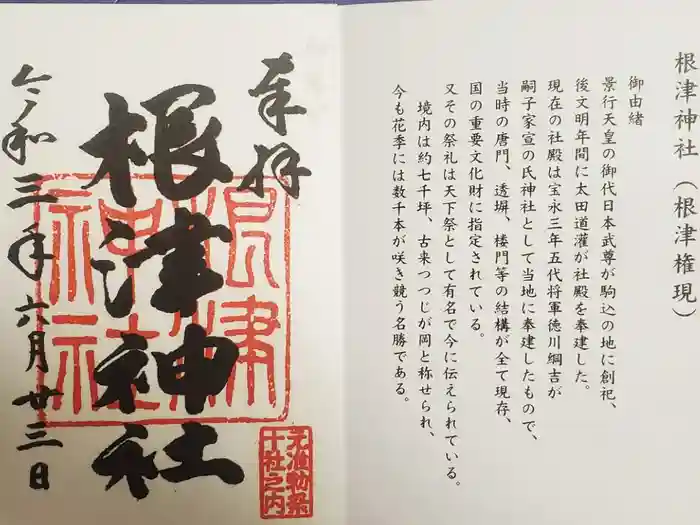 根津神社（根津権現）
御由緒
景行天皇の御代日本武尊が駒込の地に創祀、
後文明年間に太田道灌が社殿を奉建した。
現在の社殿は宝永三年五代将軍徳川綱吉が
嗣子家宣の氏神社として当地に奉建したもので、
当時の唐門、透塀、楼門等の結構が全て現存、
国の重要文化財に指定されている。
又その祭礼は天下祭として有名で今に伝えられている。
境内は約七千坪、古来つつじが岡と称せられ、
今も花季には数千本が咲き競う名勝である。
奉拝
根津神社
根津
神社
元准勅祭
十社之内
令和三年六月廿三日